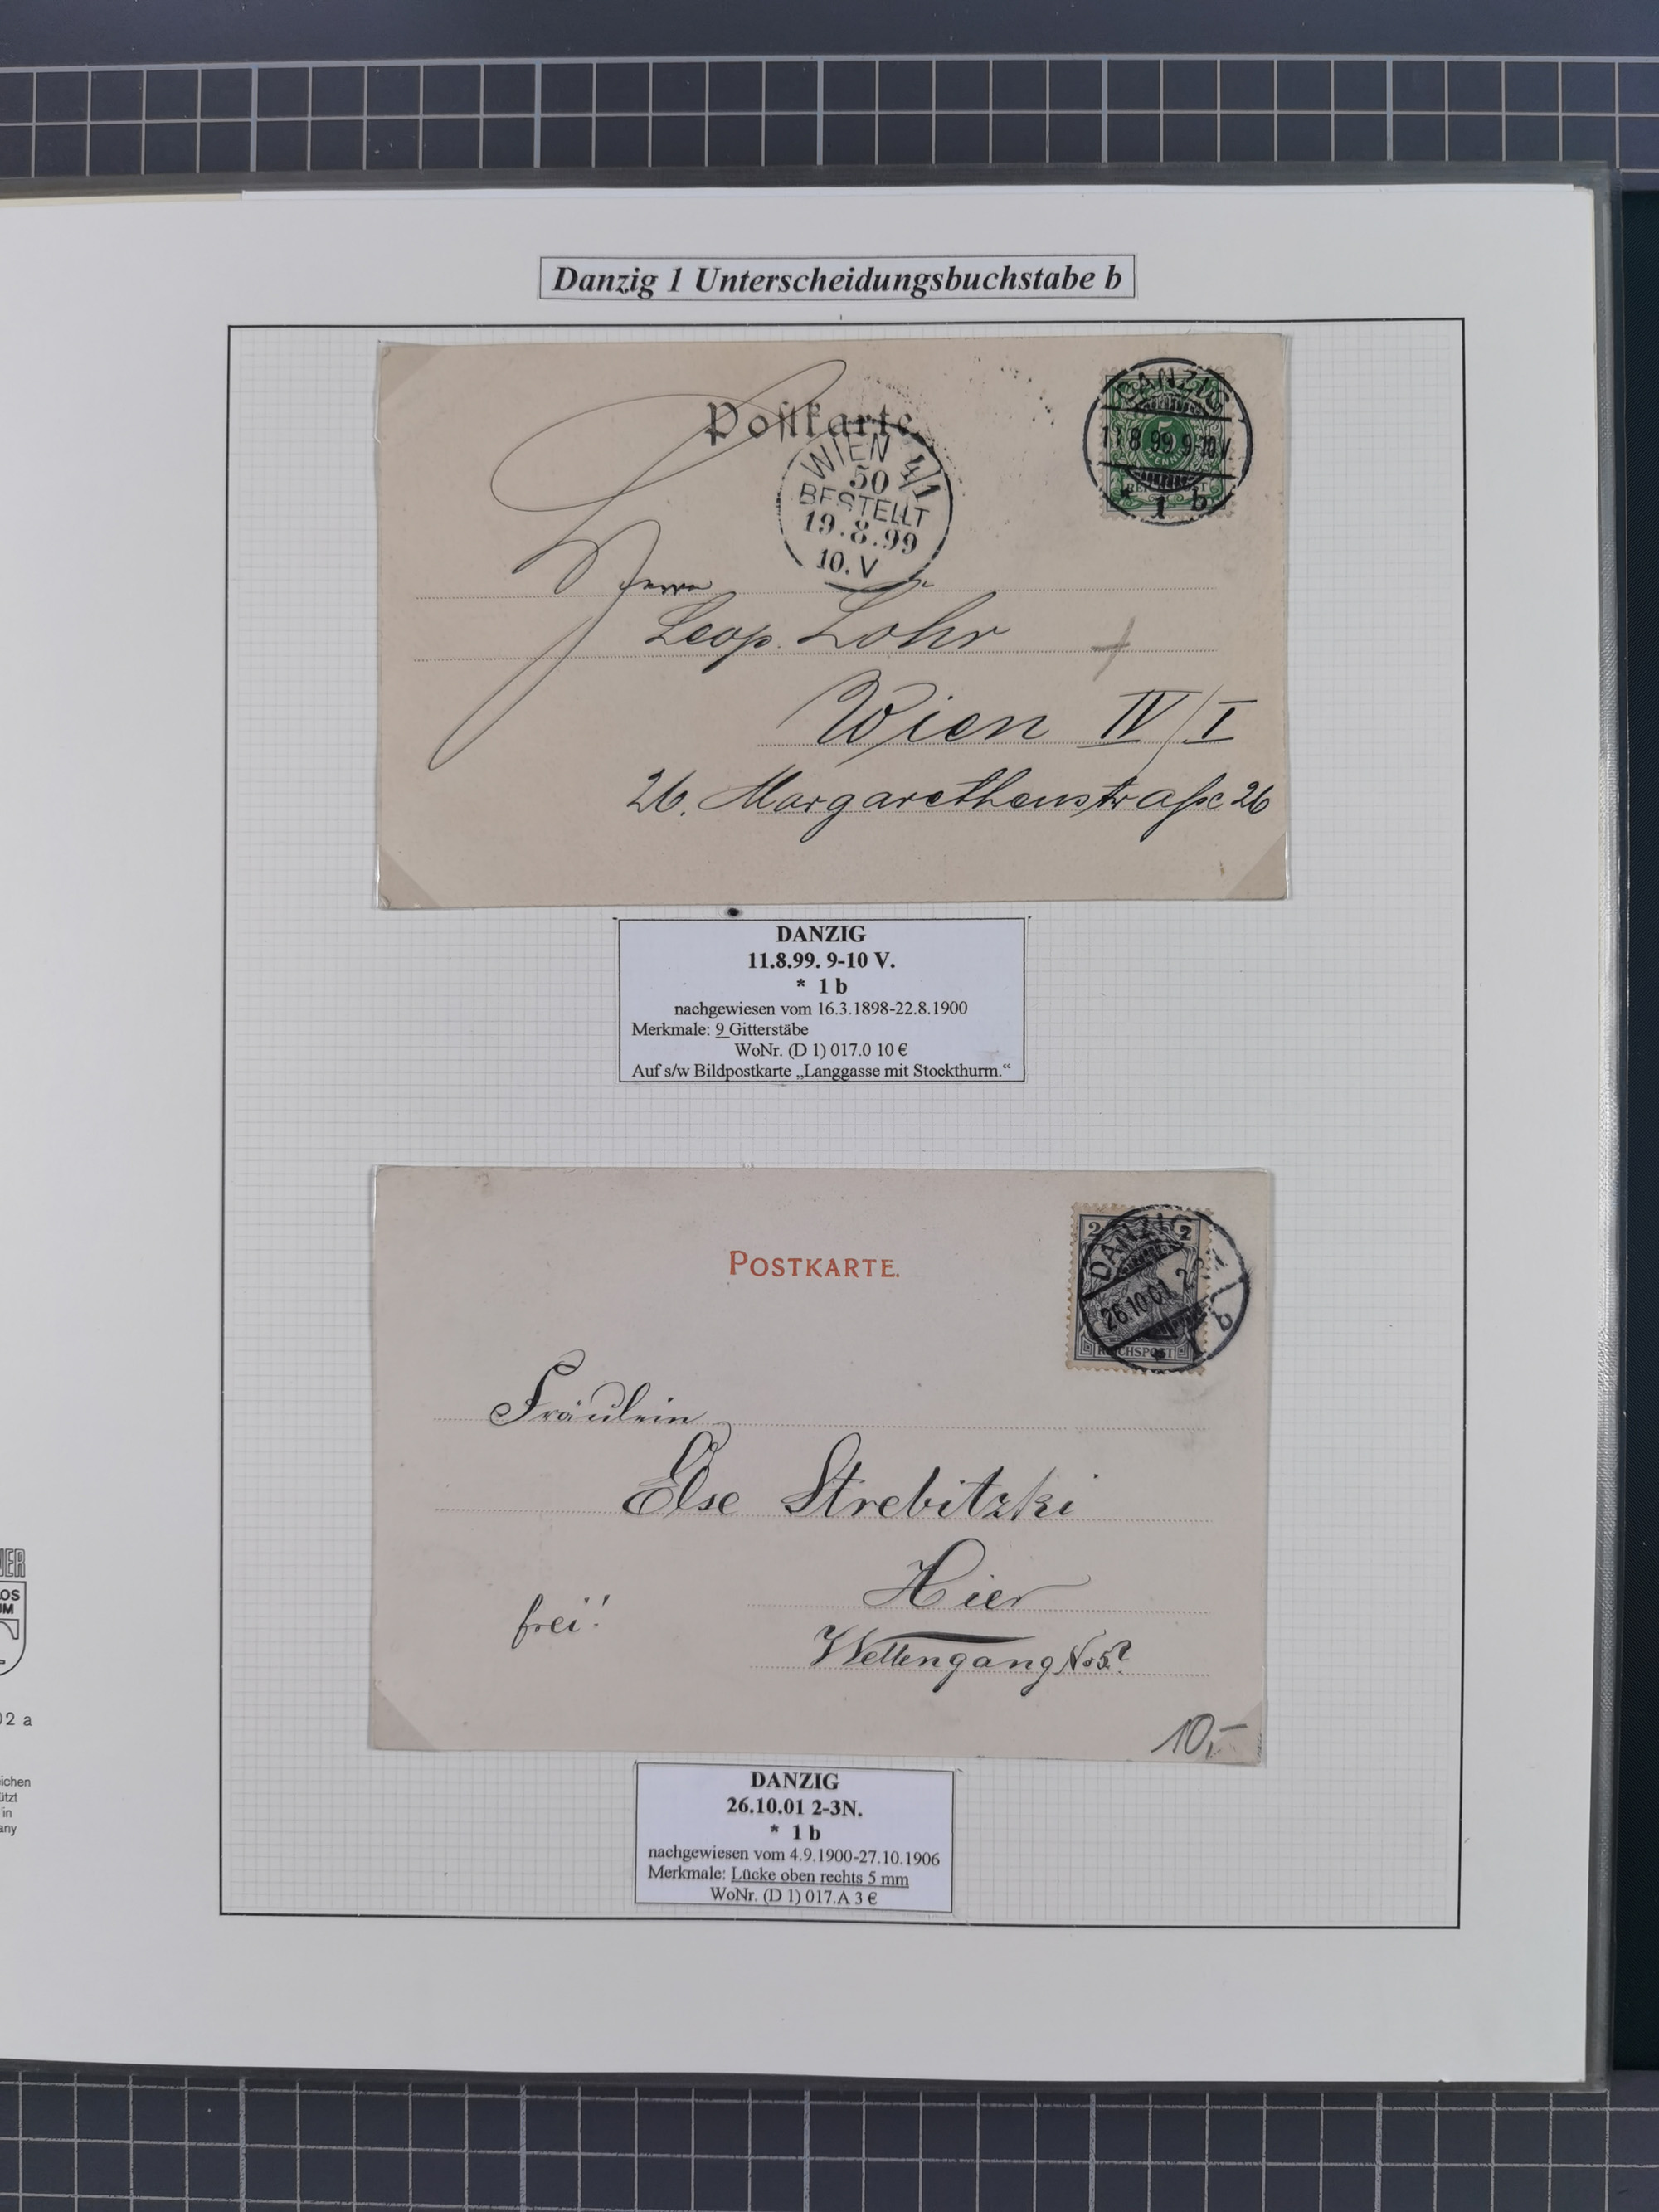 Danzig 1 Unterscheidungsbuchstabe b
Postkarte
DANZIG
11.8.99 9-10.V.
* 1 b
5
PFENNIG
WIEN 4/1
50
BESTELLT
19.8.99
10.V
Herrn
Leop. Lohr
Wien IV/I
26. Margarethenstraße 26
DANZIG
11.8.99. 9-10 V.
* 1 b
nachgewiesen vom 16.3.1898-22.8.1900
Merkmale: 9 Gitterstäbe
WoNr. (D 1) 017.0 10 €
Auf s/w Bildpostkarte „Langgasse mit Stockthurm.“
POSTKARTE.
2 2
DANZIG
26.10.01 2
* 1 b
REICHSPOST
Fräulein
Else Strebitzki
Hier
frei!
Wellengang No 5?
10,-
DANZIG
26.10.01 2-3N.
* 1 b
nachgewiesen vom 4.9.1900-27.10.1906
Merkmale: Lücke oben rechts 5 mm
WoNr. (D 1) 017.A 3 €
02 a
ichen
ützt
in
any